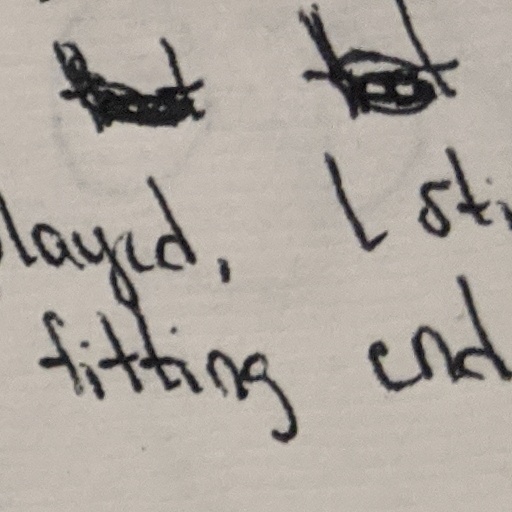 layed. I sti
fitting end